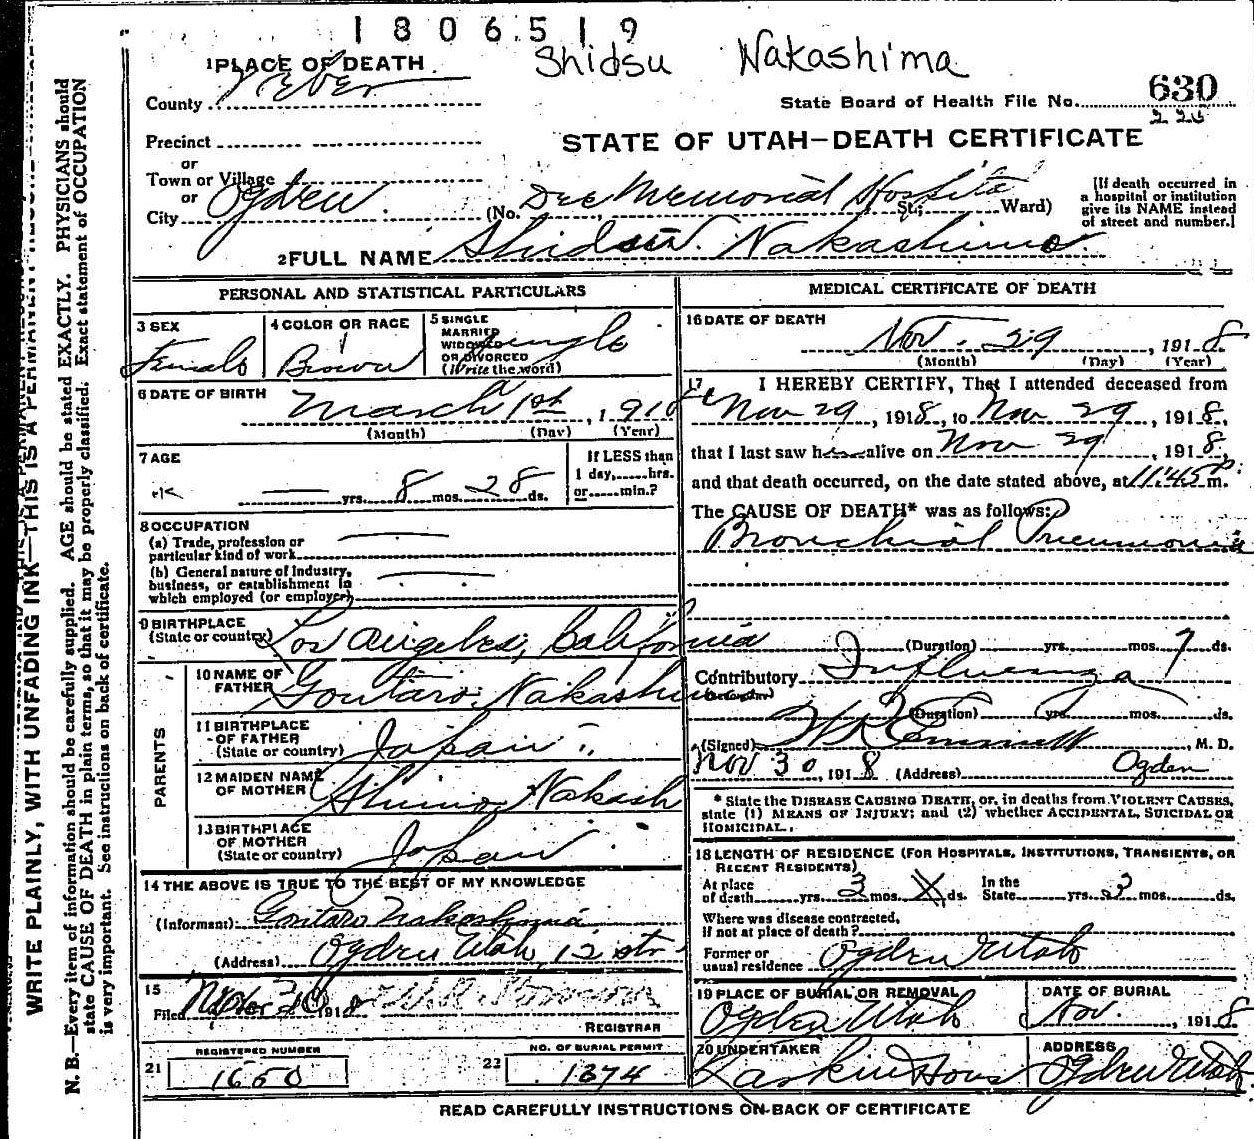 1806519
Shidsu Nakashima
1 PLACE OF DEATH
County Weber
State Board of Health File No. 630
225
Precinct
STATE OF UTAH—DEATH CERTIFICATE
or
Town or Village
or
City Ogden (No. Dee Memorial Hospital St.; Ward)
[If death occurred in
a hospital or institution
give its NAME instead
of street and number.]
2 FULL NAME Shidsu Nakashima
PERSONAL AND STATISTICAL PARTICULARS
3 SEX Female
4 COLOR OR RACE Brown
5 SINGLE
MARRIED
WIDOWED
OR DIVORCED
(Write the word) Single
6 DATE OF BIRTH March 1st, 1918
(Month) (Day) (Year)
7 AGE
— yrs. 8 mos. 28 ds.
If LESS than
1 day,......hrs.
or......min.?
8 OCCUPATION
(a) Trade, profession or
particular kind of work —
(b) General nature of industry,
business, or establishment in
which employed (or employer) —
9 BIRTHPLACE
(State or country) Los Angeles, California
PARENTS
10 NAME OF
FATHER Goutaro Nakashima
11 BIRTHPLACE
OF FATHER
(State or country) Japan
12 MAIDEN NAME
OF MOTHER Nakash
13 BIRTHPLACE
OF MOTHER
(State or country) Japan
14 THE ABOVE IS TRUE TO THE BEST OF MY KNOWLEDGE
(Informant) Goutaro Nakashima
(Address) Ogden Utah, 12 str
15
Filed Nov 30 1918
REGISTRAR
REGISTERED NUMBER
21 1660
NO. OF BURIAL PERMIT
22 1374
MEDICAL CERTIFICATE OF DEATH
16 DATE OF DEATH
Nov. 29, 1918
(Month) (Day) (Year)
17 I HEREBY CERTIFY, That I attended deceased from
Nov 29, 1918, to Nov 29, 1918,
that I last saw h alive on Nov 29, 1918,
and that death occurred, on the date stated above, at 11:45 P.m.
The CAUSE OF DEATH* was as follows:
Bronchial Pneumonia
(Duration) yrs. mos. 7 ds.
Contributory Influenza
(Secondary)
(Duration) yrs. mos. ds.
(Signed) Emmett, M. D.
Nov 30, 1918 (Address) Ogden
* State the DISEASE CAUSING DEATH, or, in deaths from VIOLENT CAUSES,
state (1) MEANS OF INJURY; and (2) whether ACCIDENTAL, SUICIDAL OR
HOMICIDAL.
18 LENGTH OF RESIDENCE (FOR HOSPITALS, INSTITUTIONS, TRANSIENTS, OR
RECENT RESIDENTS)
At place
of death yrs. 3 mos. X ds.
In the
State yrs. 3 mos. ds.
Where was disease contracted,
if not at place of death?
Former or
usual residence Ogden Utah
19 PLACE OF BURIAL OR REMOVAL
Ogden Utah
DATE OF BURIAL
Nov. , 1918
20 UNDERTAKER
Larkin & Sons
ADDRESS
Ogden Utah
READ CAREFULLY INSTRUCTIONS ON BACK OF CERTIFICATE
WRITE PLAINLY, WITH UNFADING INK—THIS IS A PERMANENT RECORD
N. B.—Every item of information should be carefully supplied. AGE should be stated EXACTLY. PHYSICIANS should
state CAUSE OF DEATH in plain terms, so that it may be properly classified. Exact statement of OCCUPATION
is very important. See instructions on back of certificate.